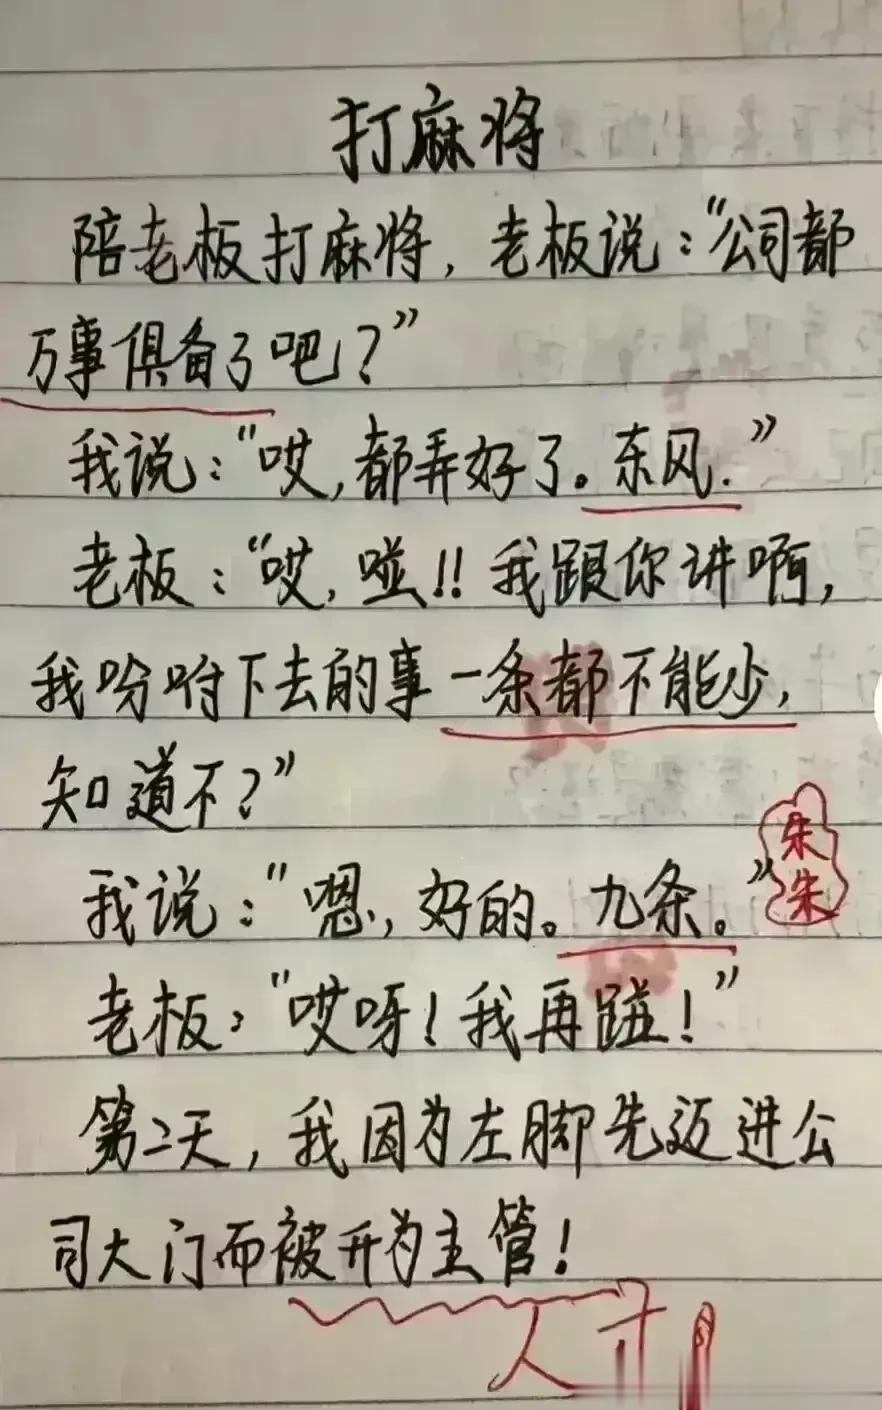 打麻将
陪老板打麻将，老板说："公司都
万事俱备了吧？"
我说："哎，都弄好了。东风."
老板："哎，碰!! 我跟你讲啊，
我吩咐下去的事一条都不能少，
知道不？"
朱朱
我说："嗯，好的。九条。"
老板："哎呀！我再碰！"
第二天，我因为左脚先迈进公
司大门而被升为主管！
人才